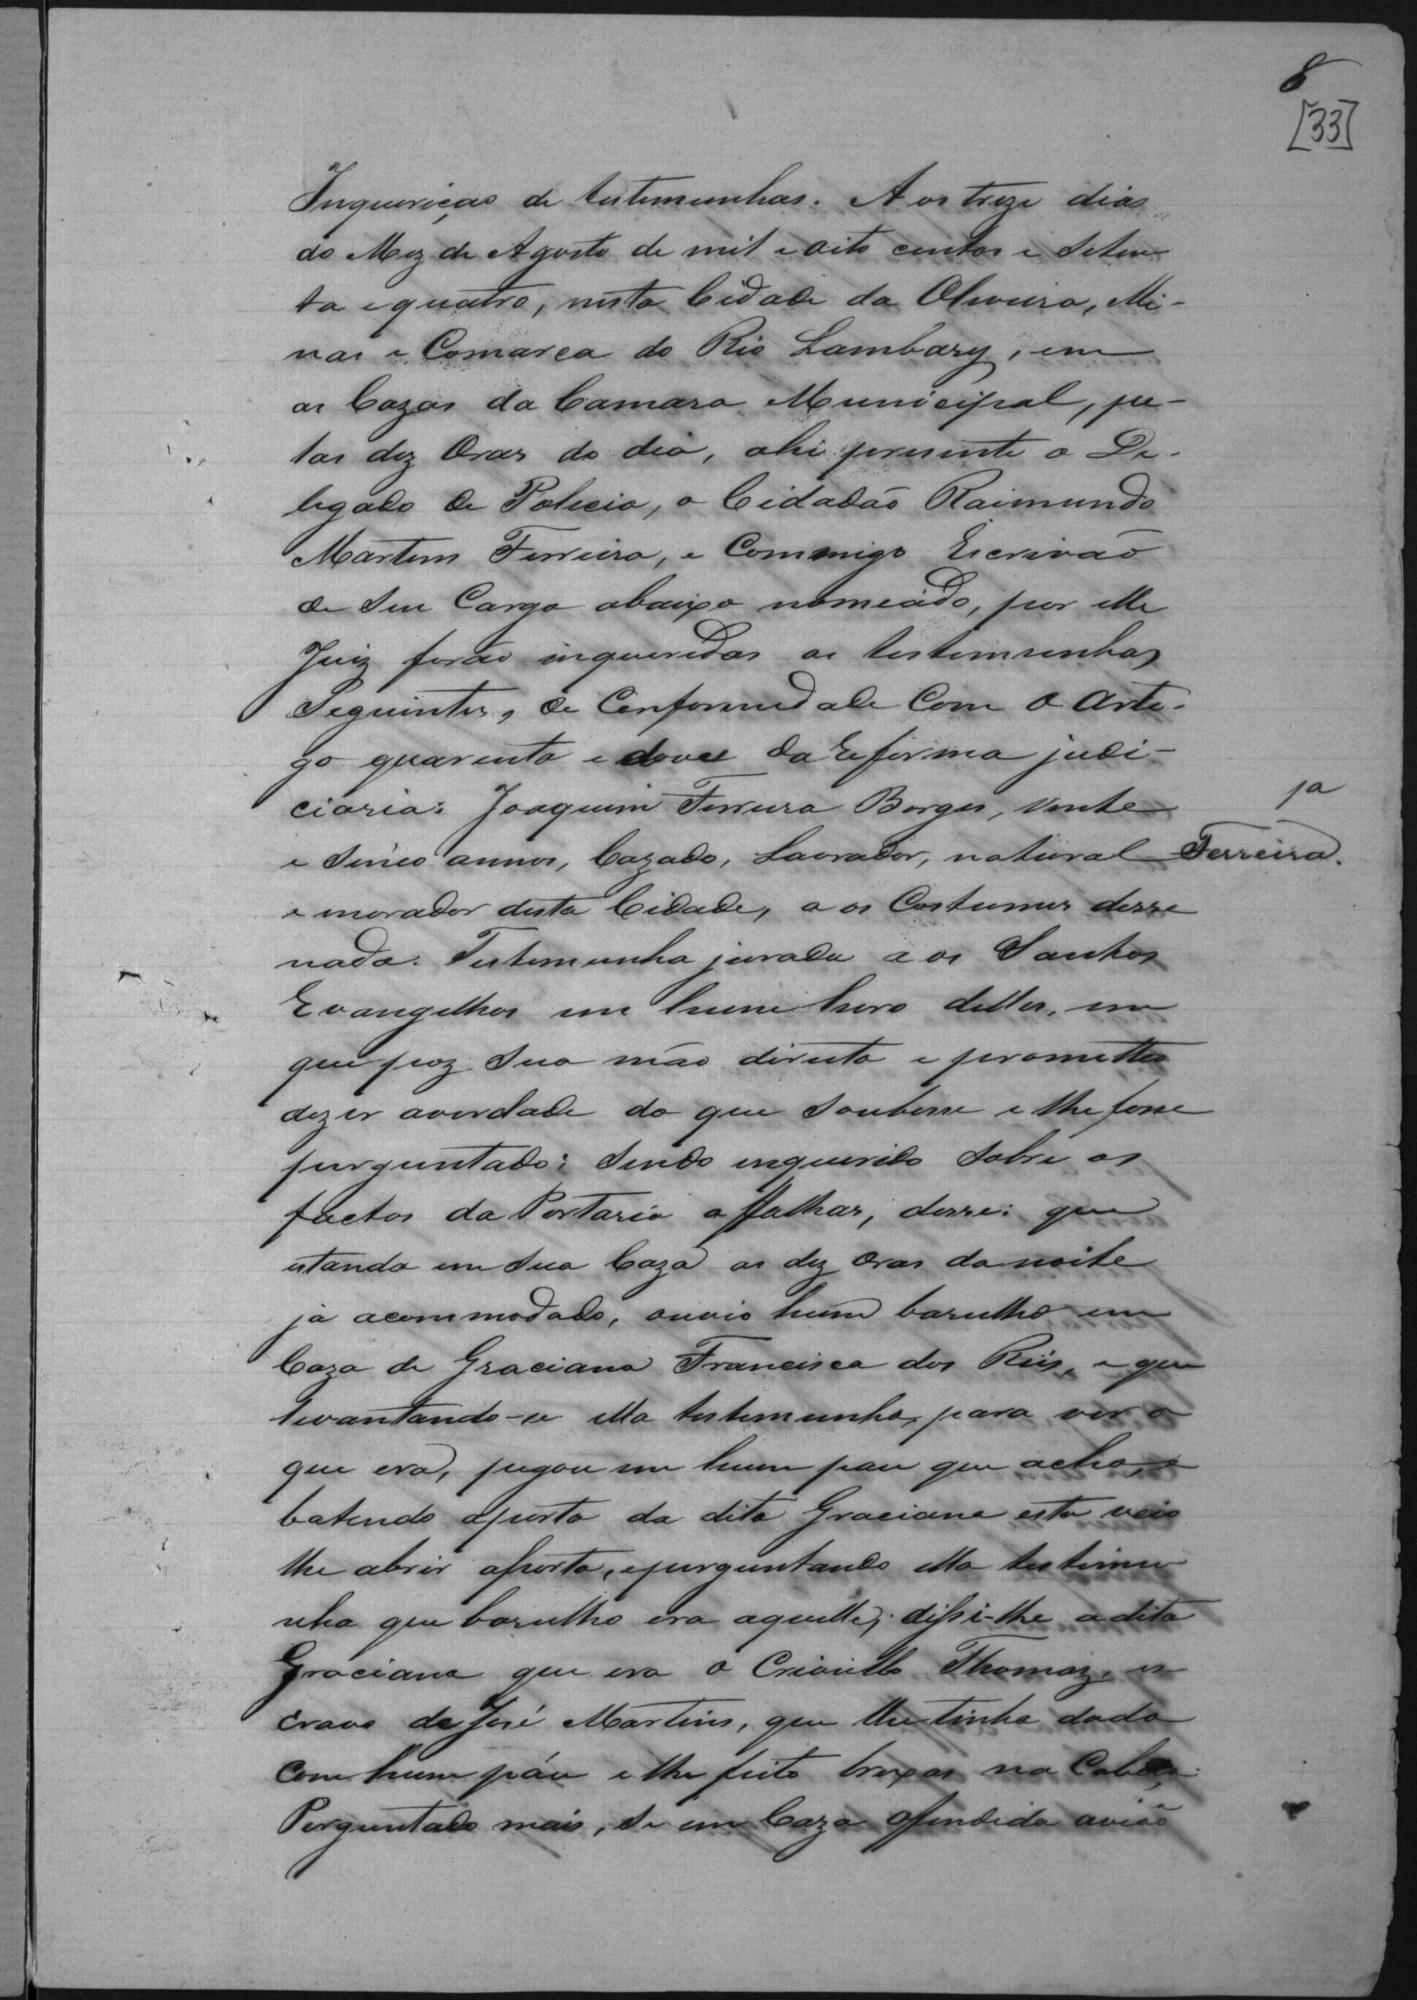 8
[33]
Inqueriçao de testemunhas. Aos treze dias
do Mez de Agosto de mil e oito centos e seten-
ta e quatro, nesta Cidade da Oliveira, Mi-
nas e Comarca do Rio Lambary, em
as Cazas da Camara Municipal, pe-
las dez Oras do dia, ahi presente o De-
legado de Policia, o Cidadão Raimundo
Martins Ferreira, e Commigo Escrivão
de seu Cargo abaixo nomeádo, por elle
Juiz forão inqueridas as testemunhas
Seguintes, de Conformedade Com o arte-
go quarenta e douce da Reforma judi-
ciaria: Joaquim Ferreira Borges, vinte
e sinco annos, Cazado, Lavrador, natural
e morador desta Cidade, a os Costumes desse
nada. Testemunha jurada a os Santos
Evangelhos em hum livro delles, em
que poz sua mão direita e prometteo
dezer averdade do que soubesse e lhe fosse
perguntado; sendo inquerido sobre os
factos da Portaria a ffalhas, desse: que
estando em sua Caza as dez oras da noite
já acommodado, ouvio hum barulho em
Caza de Graciana Francisca dos Reis, e que
levantando-se ella testemunha, para ver o
que era, pegou em hum pau que acho, e
batendo aporta da dita Graciana esta veio
lhe abrir aporta, eperguntando ella testemu-
nha que barulho era aquelle; disse-lhe adita
Graciana que era o Crioullo Thomaz, es-
cravo de José Martins, que lhe tinha dado
com hum páu e lhe feito broxas na Cabeça.
Perguntado mais, se em Caza offendida avião
ja
Ferreira.